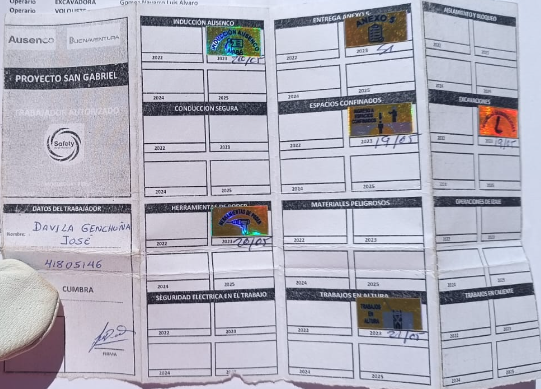 Operario EXCAVADORA Gomez Navarro Luis Alvaro
Operario VOLQUETE
Ausenco BUENAVENTURA
PROYECTO SAN GABRIEL
TRABAJADOR AUTORIZADO
Safety
DATOS DEL TRABAJADOR
Nombre: DAVILA GENCHUÑA
JOSÉ
41805146
CUMBRA
FIRMA
INDUCCIÓN AUSENCO
INDUCCIÓN AUSENCO
2022 2023 20/05
2024 2025
CONDUCCION SEGURA
2022 2023
2024 2025
HERRAMIENTAS DE PODER
HERRAMIENTAS DE PODER
2022 2023 20/05
2024 2025
SEGURIDAD ELECTRICA EN EL TRABAJO
2022 2023
2024 2025
ENTREGA ANEXO 5
ANEXO 5
2022 2023
2024 2025
ESPACIOS CONFINADOS
INGRESO A ESPACIOS CONFINADOS
2022 2023 19/05
2024 2025
MATERIALES PELIGROSOS
2022 2023
2024 2025
TRABAJOS EN ALTURA
TRABAJOS EN ALTURA
2022 2023 21/05
2024 2025
AISLAMIENTO Y BLOQUEO
2022 2023
2024 2025
EXCAVACIONES
2022 19/05
2024 2025
OPERACIONES DE IZAJE
2022 2023
2024 2025
TRABAJOS EN CALIENTE
2022 2023
2024